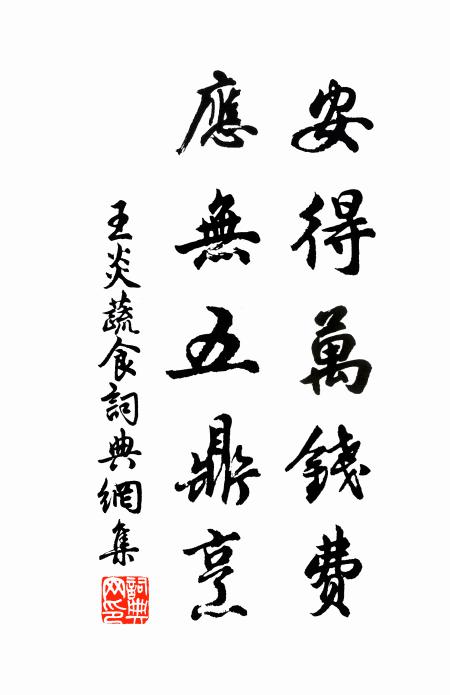 安得萬錢費
應無五鼎烹
王炎蔬食詞典網集
詞典網印